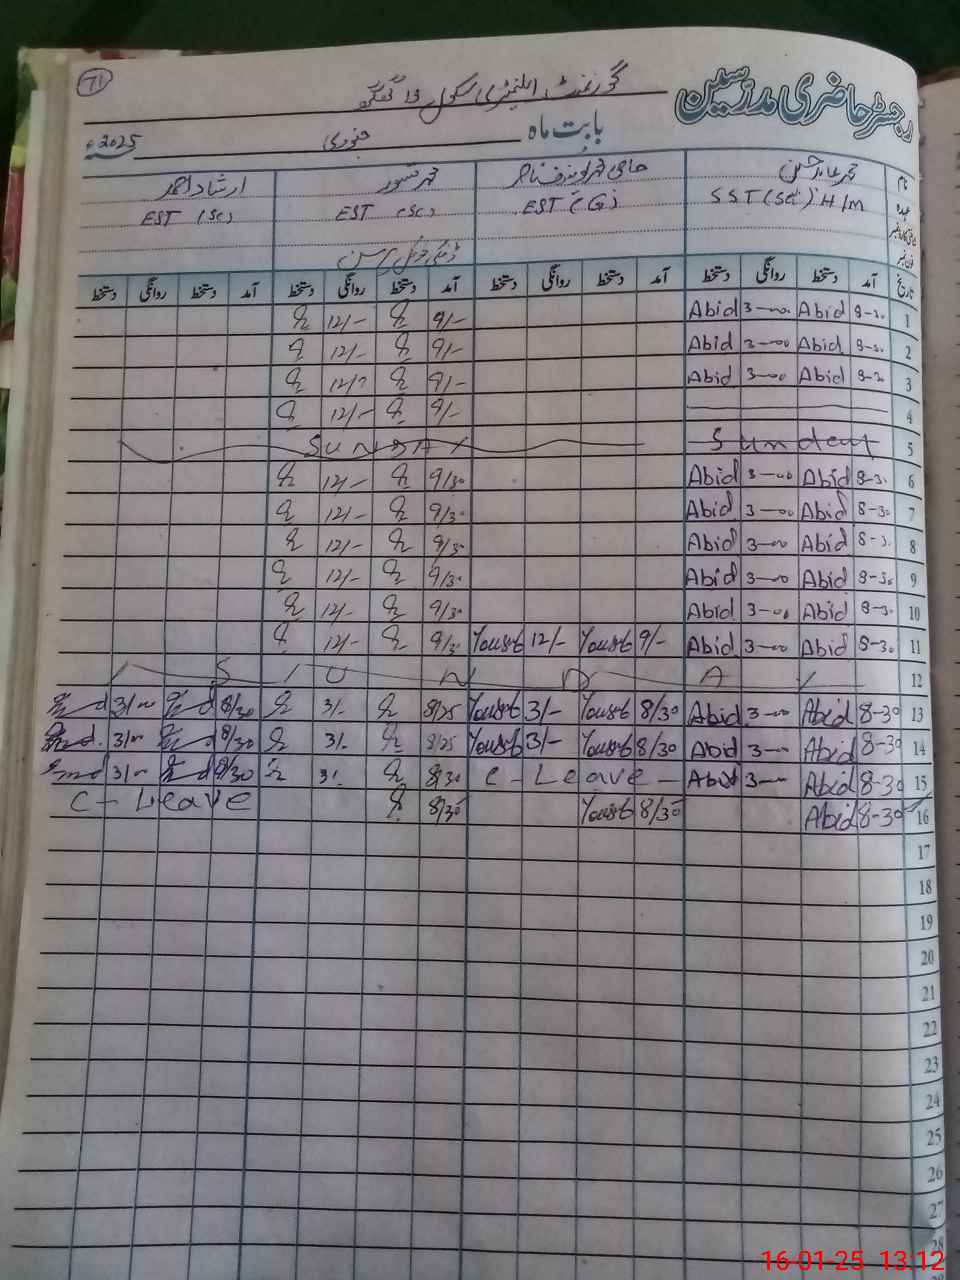 71
رجسٹر حاضری مدرسین
گورنمنٹ ایلیمنٹری سکول
بابت ماہ جنوری 2025ء
نام محمد عابد حسین حاجی محمد ارشاد احمد
عہدہ SST (Sc) H/M EST (G) EST (Sc) EST (Sc)
تاریخ آمد دستخط روانگی دستخط آمد دستخط روانگی دستخط آمد دستخط روانگی دستخط آمد دستخط روانگی دستخط
1 8-30 Abid 3-00 Abid 9/- 12/-
2 8-30 Abid 3-00 Abid 9/- 12/-
3 8-30 Abid 3-00 Abid 9/- 12/-
4 9/- 12/-
5 Sunday SUNDAY
6 8-30 Abid 3-00 Abid 9/30 12/-
7 8-30 Abid 3-00 Abid 9/30 12/-
8 8-30 Abid 3-00 Abid 9/30 12/-
9 8-30 Abid 3-00 Abid 9/30 12/-
10 8-30 Abid 3-00 Abid 9/30 12/-
11 8-30 Abid 3-00 Abid 9/- Yousaf 12/- Yousaf 9/30 12/-
12 SUNDAY
13 8-30 Abid 3-00 Abid 8/30 Yousaf 3/- Yousaf 8/25 3/- 8/30 3/00
14 8-30 Abid 3-00 Abid 8/30 Yousaf 3/- Yousaf 8/25 3/- 8/30 3/00
15 8-30 Abid 3-00 Abid C-Leave 8/30 3/- 8/30 3/00
16 8-30 Abid 8/30 Yousaf 8/30 C-Leave
17
18
19
20
21
22
23
24
25
26
27
28
16-01-25 13:12